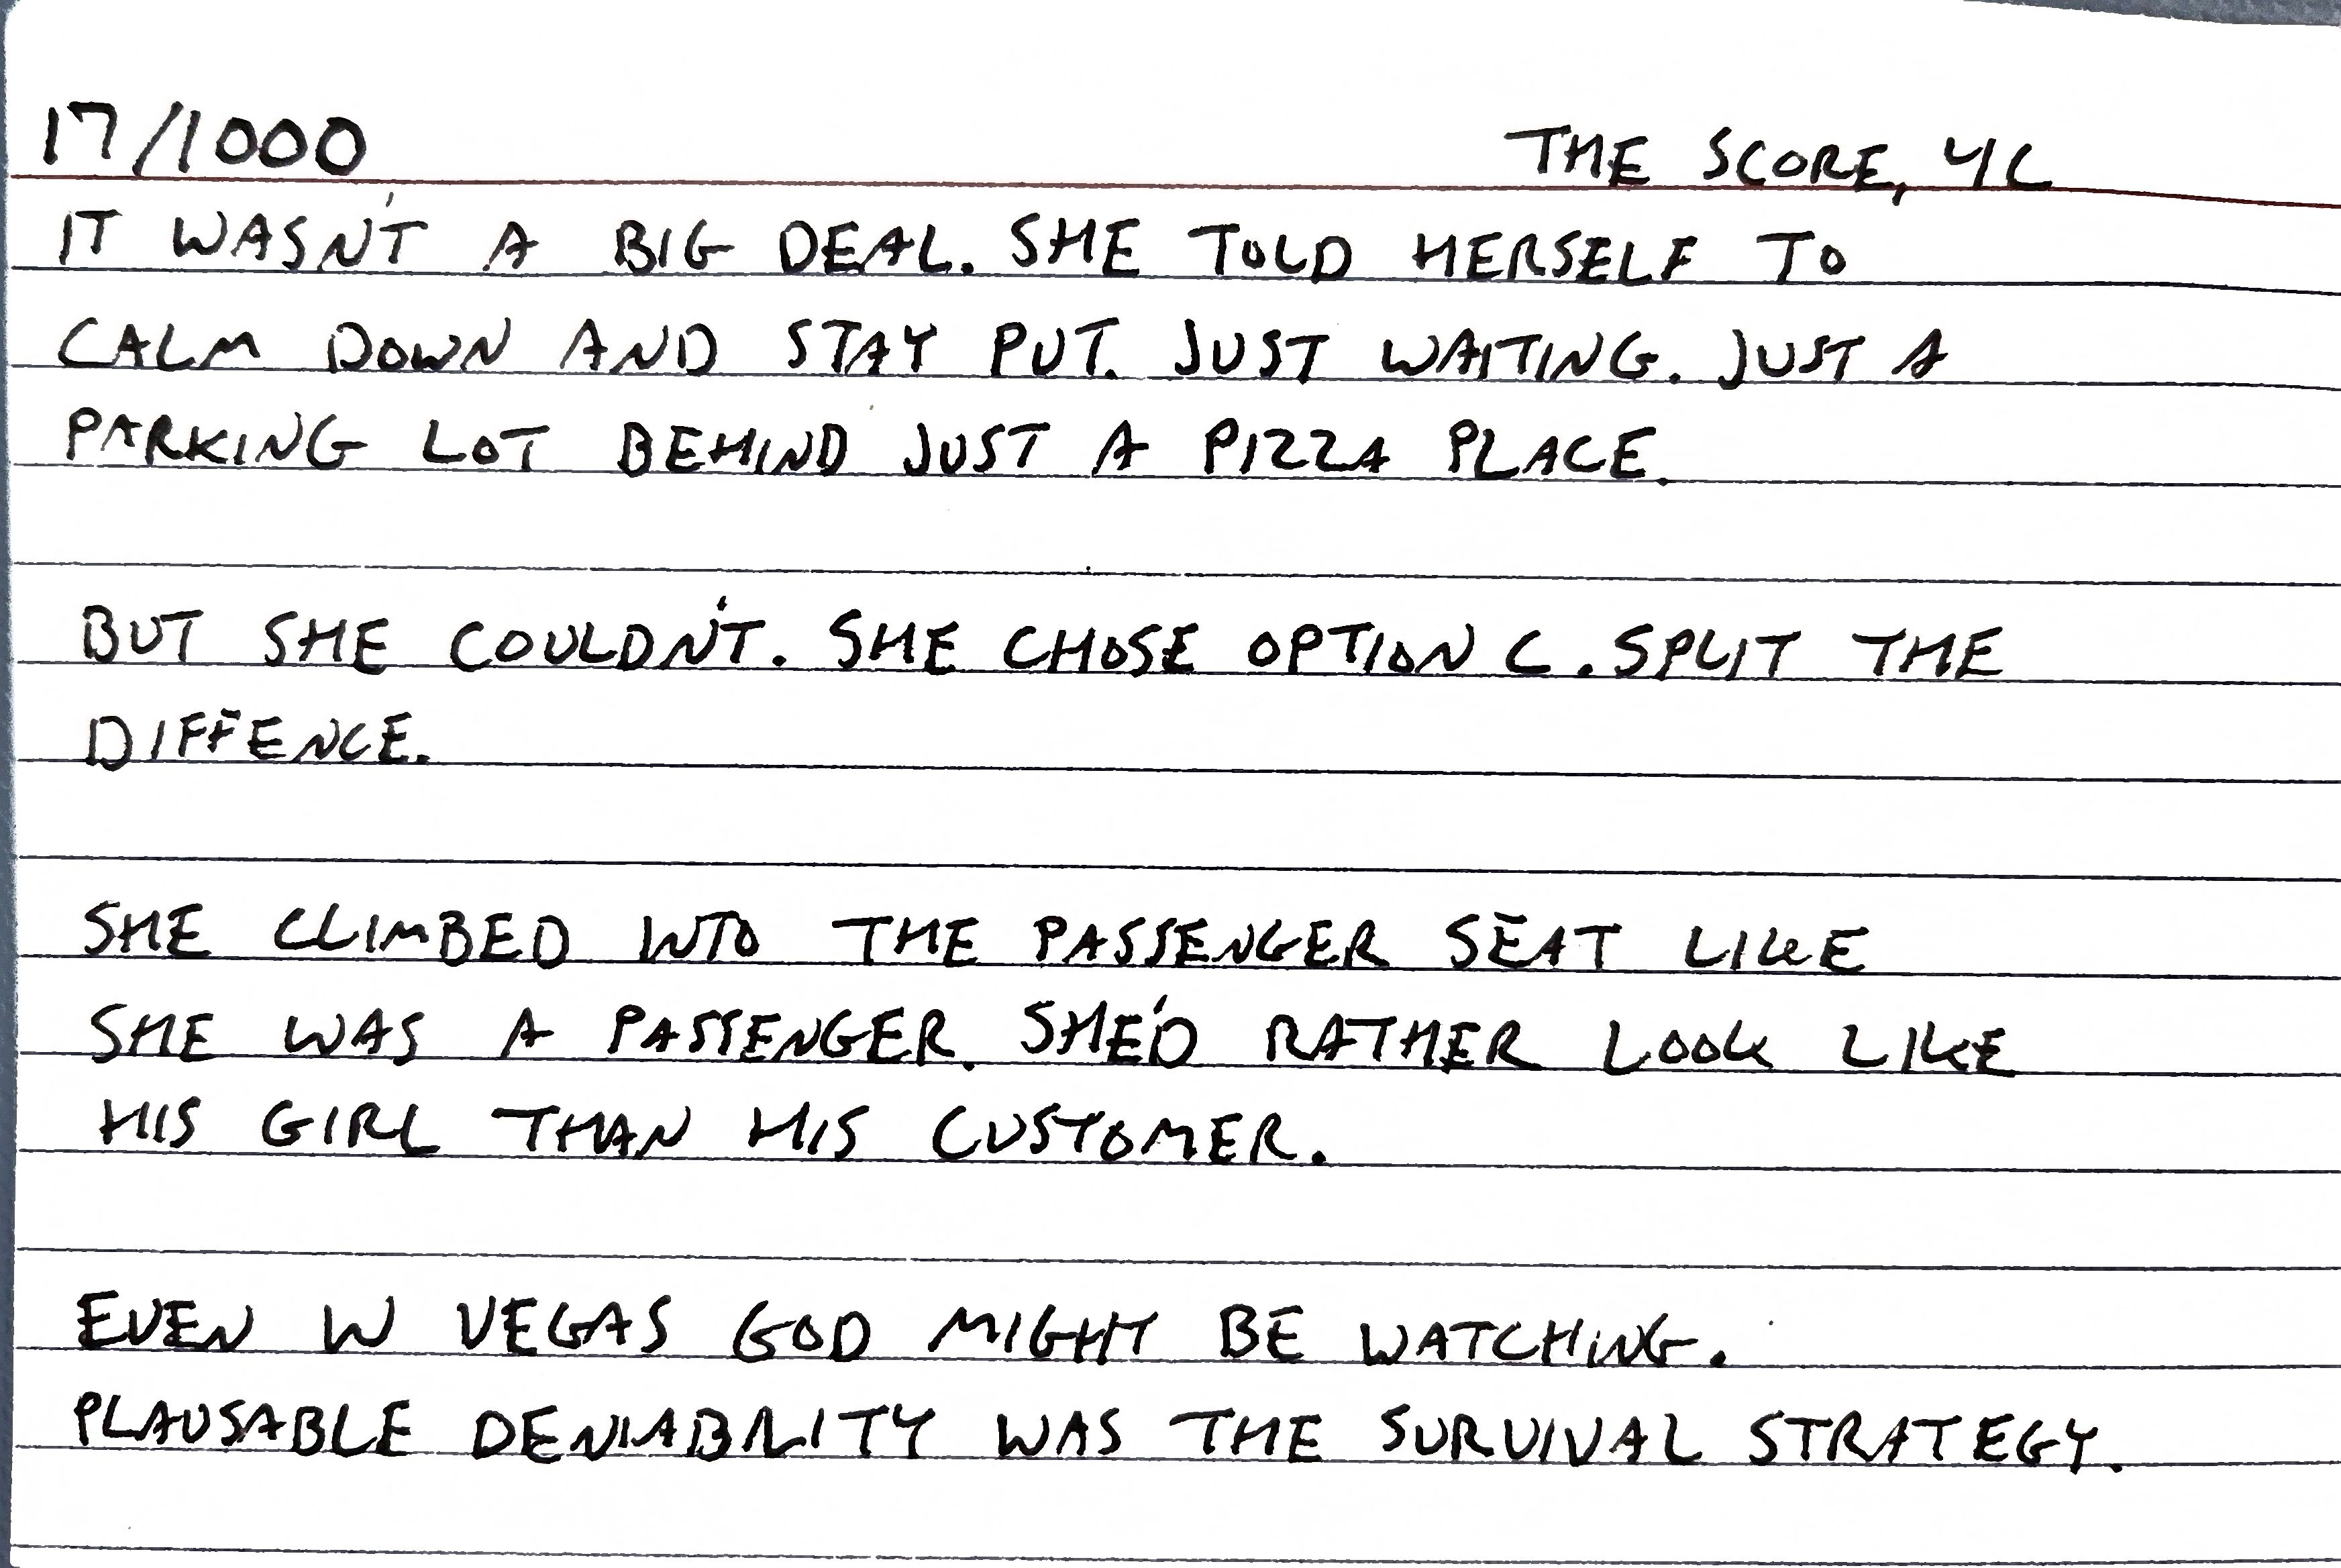 17/1000
THE SCORE, 4C
IT WASN'T A BIG DEAL. SHE TOLD HERSELF TO
CALM DOWN AND STAY PUT. JUST WAITING. JUST A
PARKING LOT BEHIND JUST A PIZZA PLACE.
BUT SHE COULDN'T. SHE CHOSE OPTION C. SPLIT THE
DIFFENCE.
SHE CLIMBED INTO THE PASSENGER SEAT LIKE
SHE WAS A PASSENGER. SHE'D RATHER LOOK LIKE
HIS GIRL THAN HIS CUSTOMER.
EVEN IN VEGAS GOD MIGHT BE WATCHING.
PLAUSABLE DENIABILITY WAS THE SURVIVAL STRATEGY.